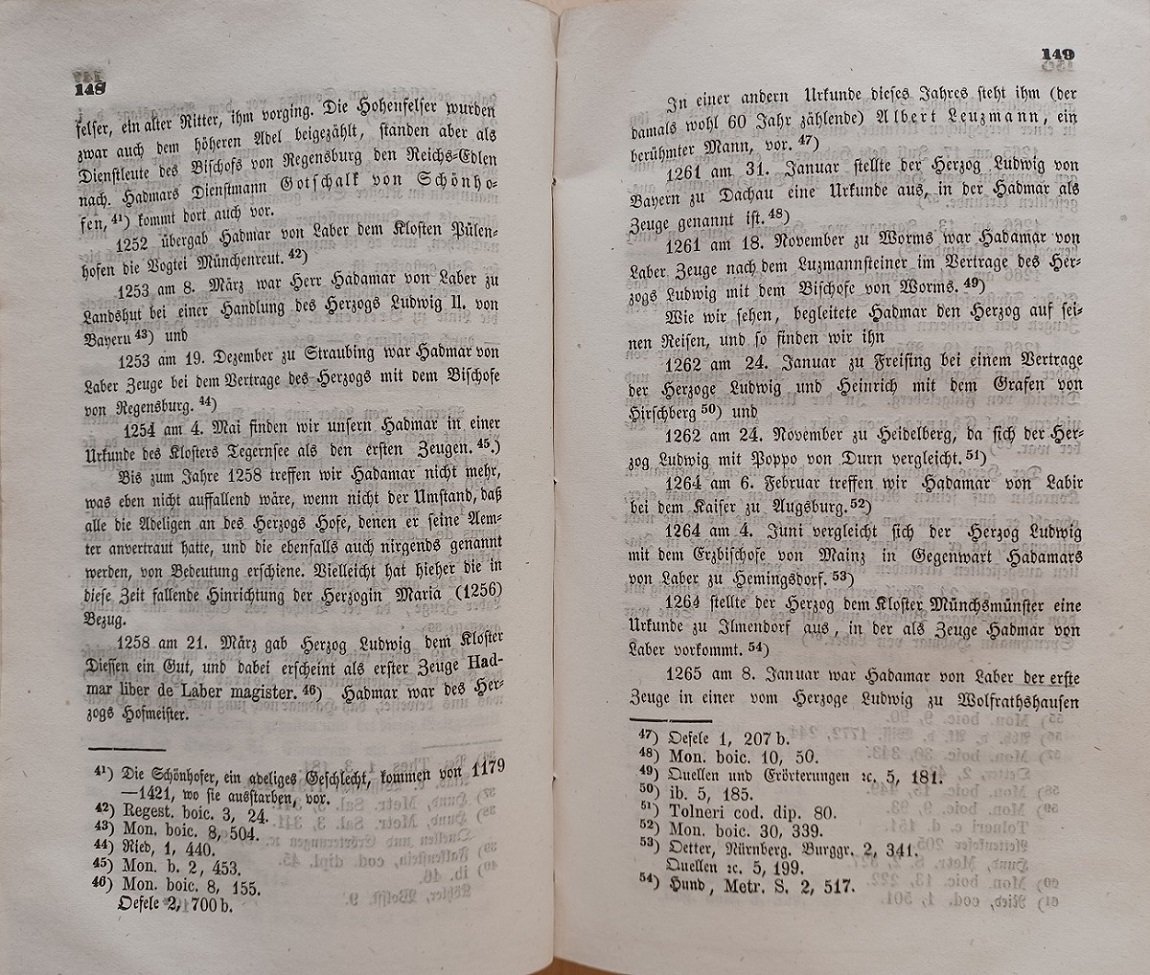 148
felser, ein alter Ritter, ihm vorging. Die Hohenfelser wurden
zwar auch dem höheren Adel beigezählt, standen aber als
Dienstleute des Bischofs von Regensburg den Reichs-Edlen
nach. Hadmars Dienstmann Gotschalk von Schönho-
fen, 41) kommt dort auch vor.
1252 übergab Hadmar von Laber dem Klosten Pülen-
hofen die Vogtei Münchenreut. 42)
1253 am 8. März war Herr Hadamar von Laber zu
Landshut bei einer Handlung des Herzogs Ludwig II. von
Bayern 43) und
1253 am 19. Dezember zu Straubing war Hadmar von
Laber Zeuge bei dem Vertrage des Herzogs mit dem Bischofe
von Regensburg. 44)
1254 am 4. Mai finden wir unsern Hadmar in einer
Urkunde des Klosters Tegernsee als den ersten Zeugen. 45.)
Bis zum Jahre 1258 treffen wir Hadamar nicht mehr,
was eben nicht auffallend wäre, wenn nicht der Umstand, daß
alle die Adeligen an des Herzogs Hofe, denen er seine Aem-
ter anvertraut hatte, und die ebenfalls auch nirgends genannt
werden, von Bedeutung erschiene. Vielleicht hat hieher die in
diese Zeit fallende Hinrichtung der Herzogin Maria (1256)
Bezug.
1258 am 21. März gab Herzog Ludwig dem Kloster
Diessen ein Gut, und dabei erscheint als erster Zeuge Had-
mar liber de Laber magister. 46) Hadmar war des Her-
zogs Hofmeister.
41) Die Schönhofer, ein adeliges Geschlecht, kommen von 1179
—1421, wo sie ausstarben, vor.
42) Regest. boic. 3, 24.
43) Mon. boic. 8, 504.
44) Ried, 1, 440.
45) Mon. b. 2, 453.
46) Mon. boic. 8, 155.
Oefele 2, 700 b.
149
In einer andern Urkunde dieses Jahres steht ihm (der
damals wohl 60 Jahr zählende) Albert Leuzmann, ein
berühmter Mann, vor. 47)
1261 am 31. Januar stellte der Herzog Ludwig von
Bayern zu Dachau eine Urkunde aus, in der Hadmar als
Zeuge genannt ist. 48)
1261 am 18. November zu Worms war Hadamar von
Laber Zeuge nach dem Luzmannsteiner im Vertrage des Her-
zogs Ludwig mit dem Bischofe von Worms. 49)
Wie wir sehen, begleitete Hadmar den Herzog auf sei-
nen Reisen, und so finden wir ihn
1262 am 24. Januar zu Freising bei einem Vertrage
der Herzoge Ludwig und Heinrich mit dem Grafen von
Hirschberg 50) und
1262 am 24. November zu Heidelberg, da sich der Her-
zog Ludwig mit Poppo von Durn vergleicht. 51)
1264 am 6. Februar treffen wir Hadamar von Labir
bei dem Kaiser zu Augsburg. 52)
1264 am 4. Juni vergleicht sich der Herzog Ludwig
mit dem Erzbischofe von Mainz in Gegenwart Hadamars
von Laber zu Hemingsdorf. 53)
1264 stellte der Herzog dem Kloster Münchsmünster eine
Urkunde zu Ilmendorf aus, in der als Zeuge Hadmar von
Laber vorkommt. 54)
1265 am 8. Januar war Hadamar von Laber der erste
Zeuge in einer vom Herzoge Ludwig zu Wolfrathshausen
47) Oefele 1, 207 b.
48) Mon. boic. 10, 50.
49) Quellen und Erörterungen ꝛc. 5, 181.
50) ib. 5, 185.
51) Tolneri cod. dip. 80.
52) Mon. boic. 30, 339.
53) Oetter, Nürnberg. Burggr. 2, 341.
Quellen ꝛc. 5, 199.
54) Hund, Metr. S. 2, 517.